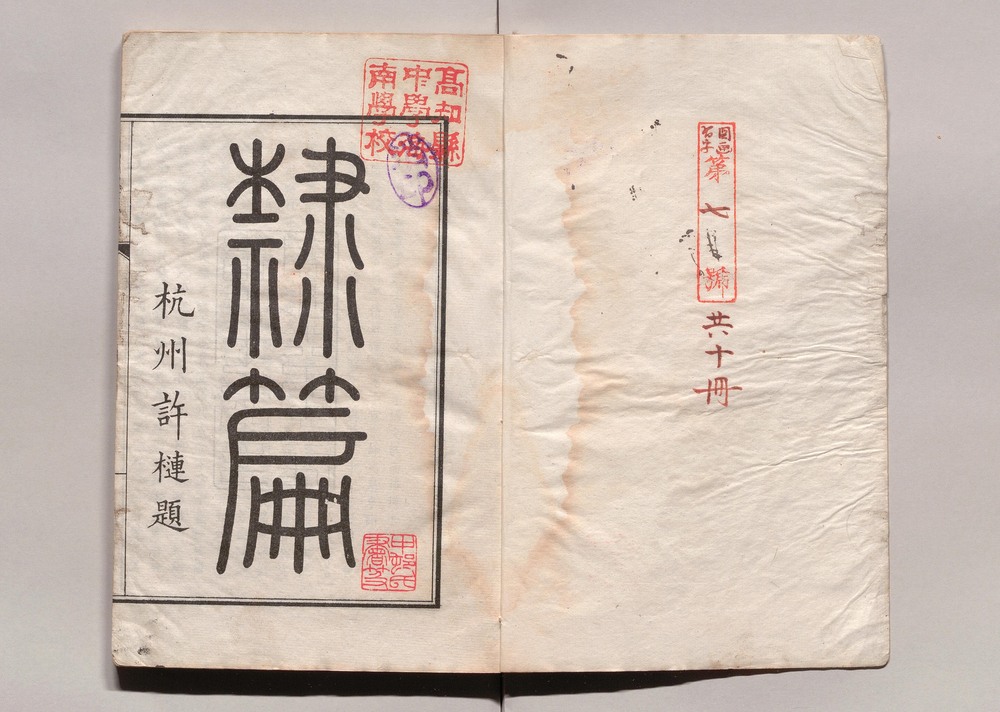 第七
號
共十冊
高知縣
中學海
南學校
隸篇
杭州許槤題